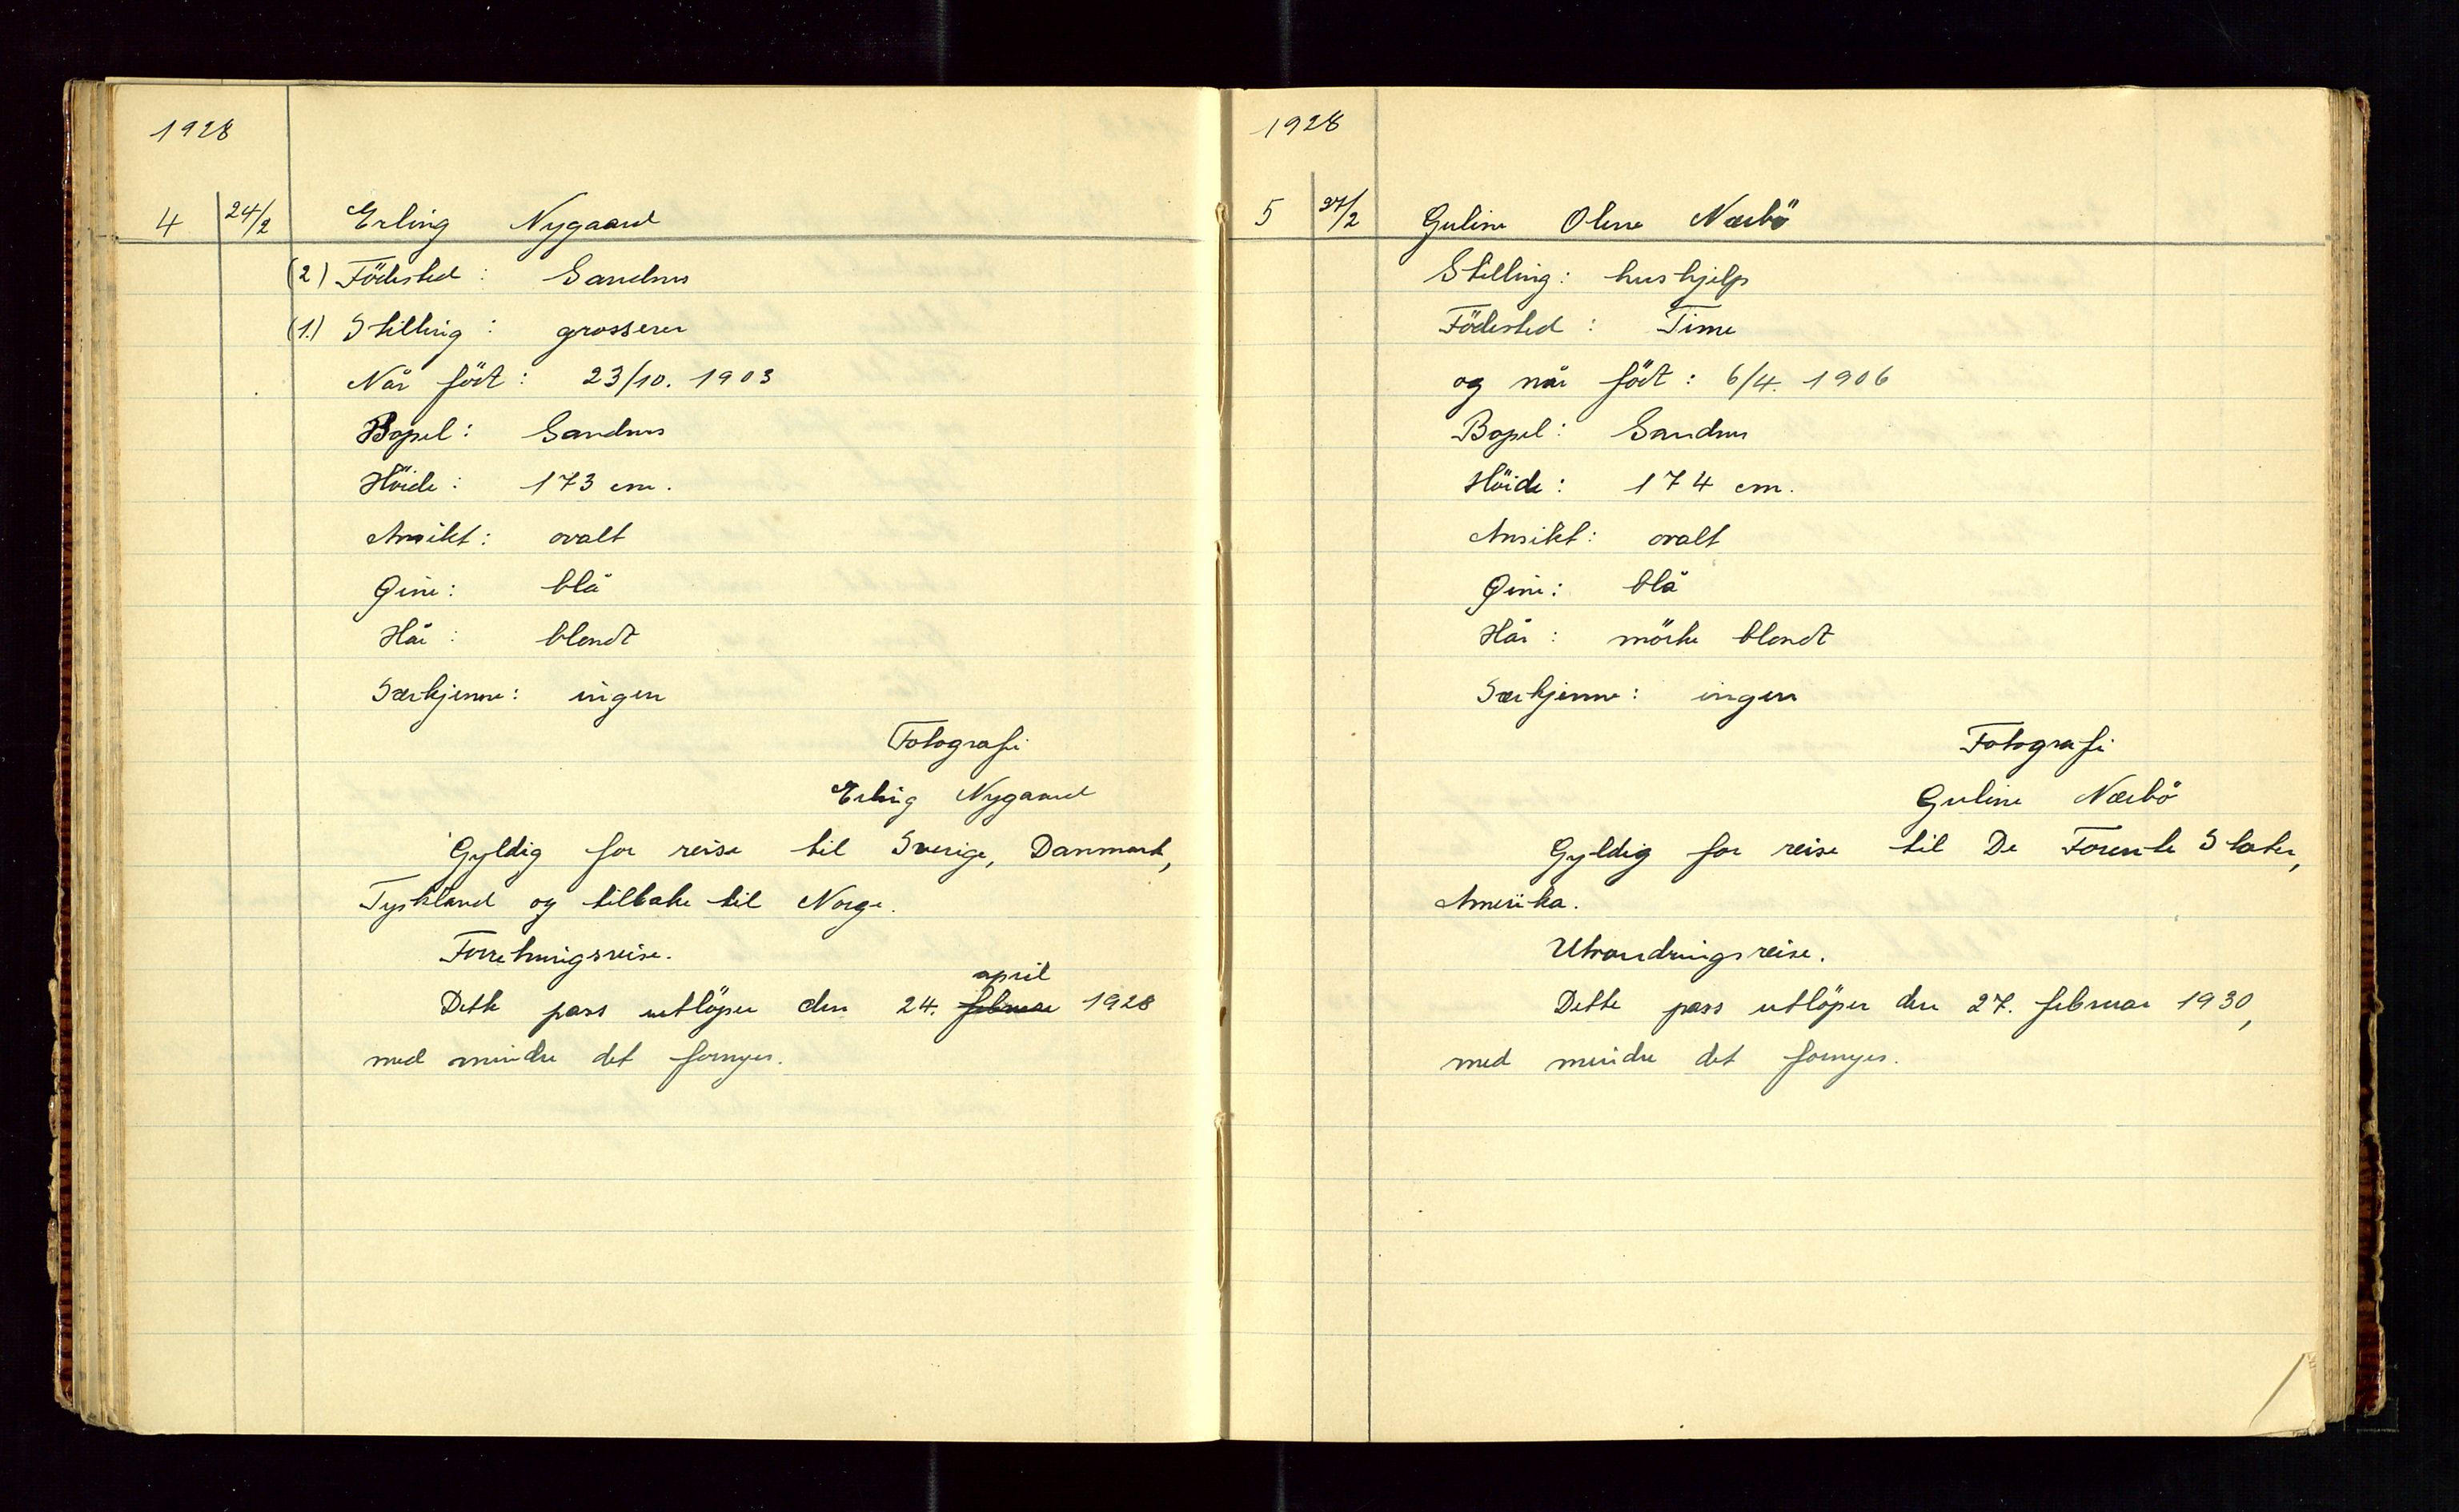 1928
4 24/2 Erling Nygaard
(2) Födested: Sandnes
(1.) Stilling: grosserer
Når född: 23/10. 1903
Bopel: Sandnes
Höide: 173 cm.
Ansikt: ovalt
Øine: blå
Hår: blondt
Særkjenne: ingen
Fotografi
Erling Nygaard
Gyldig for reise til Sverige, Danmark,
Tyskland og tilbake til Norge.
Forretningsreise.
april
Dette pass utlöper den 24. februar 1928
med mindre det fornyes.
1928
5 27/2 Guline Oline Nærbö
Stilling: hushjelp
Födested: Time
og når födt: 6/4. 1906
Bopel: Sandnes
Höide: 174 cm.
Ansikt: ovalt
Øine: blå
Hår: mörke blondt
Særkjenne: ingen
Fotografi
Guline Nærbö
Gyldig for reise til De Forente Stater,
Amerika.
Utvandringsreise.
Dette pass utlöper den 27. februar 1930,
med mindre det fornyes.